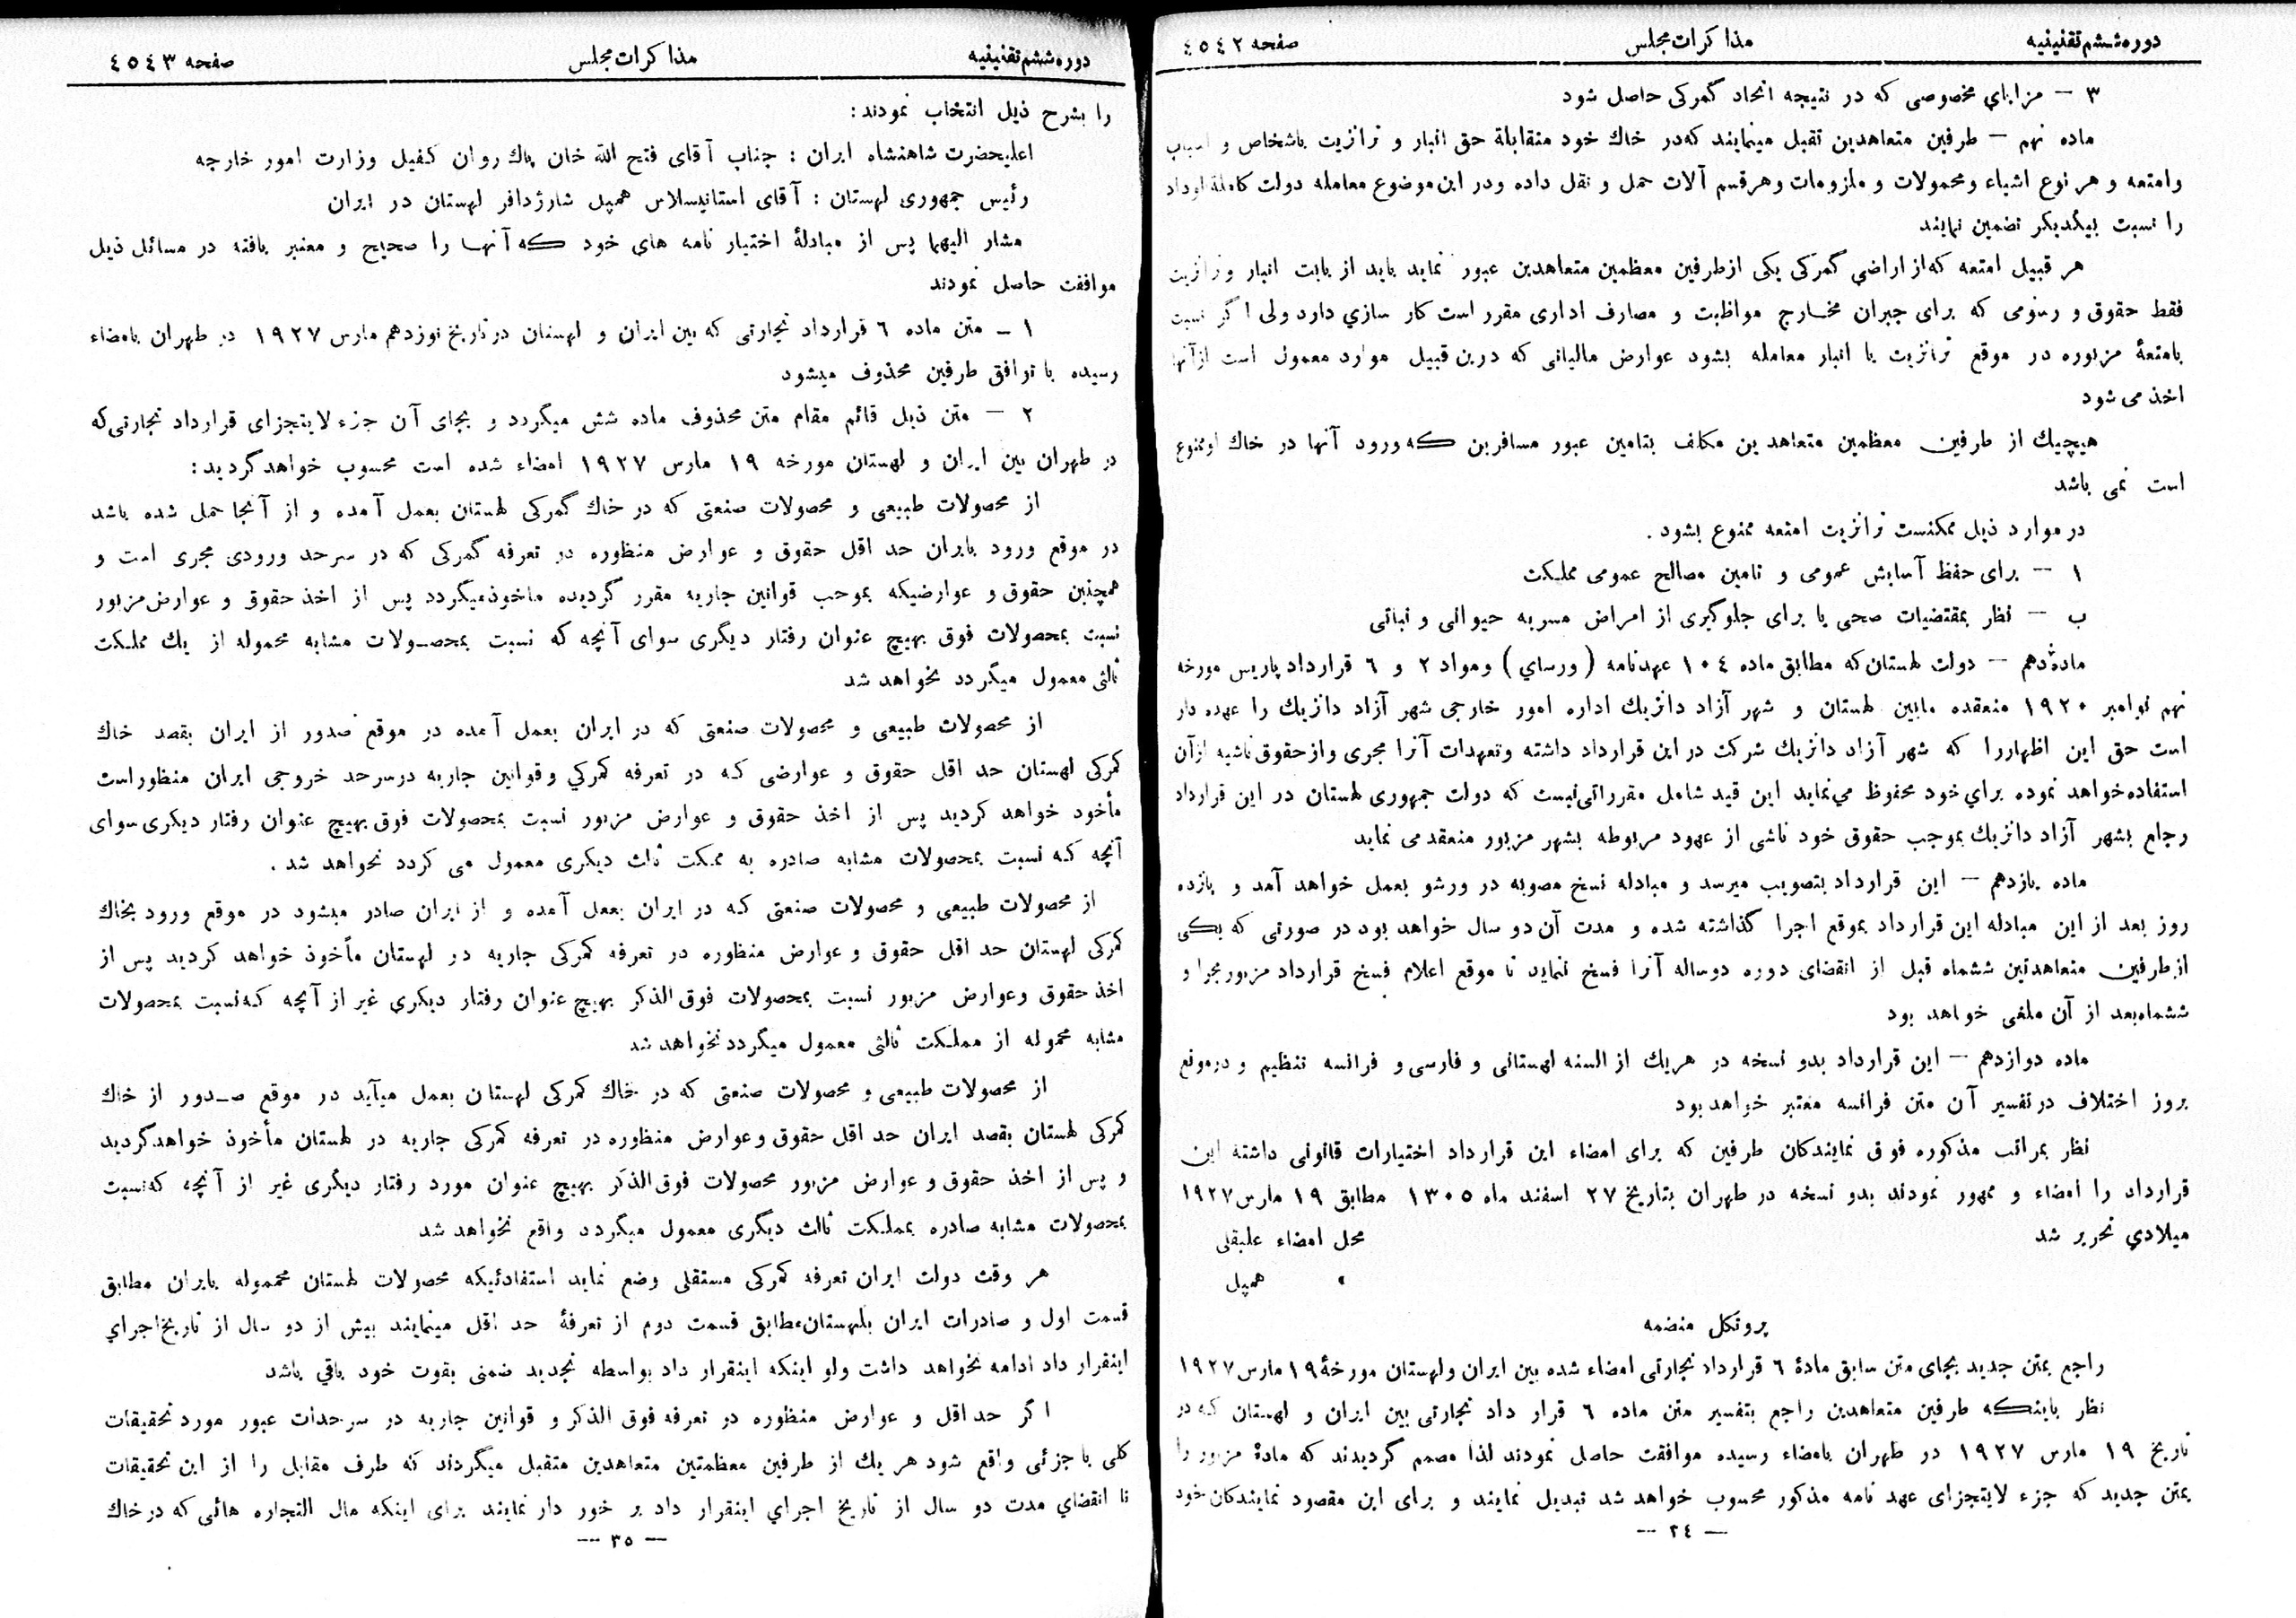 دوره ششم تقنینیه مذاکرات مجلس صفحه ٤٥٤٢
۳ – مزایای مخصوصی که در نتیجه اتحاد گمرکی حاصل شود
ماده نهم – طرفین متعاهدین تقبل مینمایند که در خاک خود متقابلة حق انبار و ترانزیت باشخاص و اسباب
وامتعه و هر نوع اشیاء ومحمولات و ملزومات وهرقسم آلات حمل و نقل داده ودر این موضوع معامله دولت کاملةالوداد
را نسبت بیکدیکر تضمین نمایند
هر قبیل امتعه که از اراضی گمرکی یکی ازطرفین معظمین متعاهدین عبور نماید باید از بابت انبار وترانزیت
فقط حقوق و رسومی که برای جبران مخارج مواظبت و مصارف اداری مقرر است کار سازي دارد ولی اگر نسبت
بامتعۀ مزبوره در موقع ترانزیت یا انبار معامله بشود عوارض مالیاتی که درین قبیل موارد معمول است ازآنها
اخذ می شود
هیچیك از طرفین معظمین متعاهدین مکلف بتامین عبور مسافرین که ورود آنها در خاك اوممنوع
است نمی باشد
در موارد ذیل ممکنست ترانزیت امتعه ممنوع بشود .
۱ – برای حفظ آسایش عمومی و تامین مصالح عمومی مملکت
ب – نظر بمقتضیات صحی یا برای جلوگیری از امراض مسریه حیوانی و نباتی
ماده دهم – دولت لهستان که مطابق ماده ۱۰٤ عهدنامه ( ورساي ) ومواد ۲ و ٦ قرارداد پاریس مورخه
نهم نوامبر ۱۹۲۰ منعقده مابین لهستان و شهر آزاد دانزیك اداره امور خارجی شهر آزاد دانزیك را عهده دار
است حق این اظهاررا که شهر آزاد دانزیك شرکت در این قرارداد داشته وتعهدات آنرا مجری وازحقوق ناشیه ازآن
استفاده خواهد نموده براي خود محفوظ می نماید این قید شامل مقرراتی نیست که دولت جمهوری لهستان در این قرارداد
رجاع بشهر آزاد دانزیك بموجب حقوق خود ناشی از عهود مربوطه بشهر مزبور منعقد می نماید
ماده یازدهم – این قرارداد بتصویب میرسد و مبادله نسخ مصوبه در ورشو بعمل خواهد آمد و پانزده
روز بعد از این مبادله این قرارداد بموقع اجرا گذاشته شده و مدت آن دو سال خواهد بود در صورتی که یکی
ازطرفین متعاهدین ششماه قبل از انقضای دوره دوساله آنرا فسخ ننماید تا موقع اعلام فسخ قرارداد مزبور مجرا و
ششماه بعد از آن ملغی خواهد بود
ماده دوازدهم – این قرارداد بدو نسخه در هریك از السنه لهستانی و فارسی و فرانسه تنظیم و درموقع
بروز اختلاف در تفسیر آن متن فرانسه معتبر خواهد بود
نظر بمراتب مذکوره فوق نمایندکان طرفین که برای امضاء این قرارداد اختیارات قانونی داشته این
قرارداد را امضاء و ممهور نمودند بدو نسخه در طهران بتاریخ ۲۷ اسفند ماه ۱۳۰۵ مطابق ۱۹ مارس ۱۹۲۷
میلادي تحریر شد محل امضاء علیقلی
» همپل
پروتکل منضمه
راجع بمتن جدید بجای متن سابق مادۀ ٦ قرارداد تجارتی امضاء شده بین ایران ولهستان مورخۀ ۱۹ مارس ۱۹۲۷
نظر باینکه طرفین متعاهدین راجع بتفسیر متن ماده ٦ قرار داد تجارتی بین ایران و لهستان که در
تاریخ ۱۹ مارس ۱۹۲۷ در طهران بامضاء رسیده موافقت حاصل نمودند لذا مصمم گردیدند که مادۀ مزبور را
بمتن جدید که جزء لایتجزای عهد نامه مذکور محسوب خواهد شد تبدیل نمایند و برای این مقصود نمایندکان خود
— ۳٤ —
دوره ششم تقنینیه مذاکرات مجلس صفحه ٤٥٤۳
را بشرح ذیل انتخاب نمودند :
اعلیحضرت شاهنشاه ایران : جناب آقای فتح الله خان پاك روان کفیل وزارت امور خارجه
رئیس جمهوری لهستان : آقای استانیسلاس همپل شارژدافر لهستان در ایران
مشار الیهما پس از مبادلۀ اختیار نامه های خود که آنها را صحیح و معتبر یافته در مسائل ذیل
موافقت حاصل نمودند
۱ – متن ماده ٦ قرارداد تجارتی که بین ایران و لهستان در تاریخ نوزدهم مارس ۱۹۲۷ در طهران بامضاء
رسیده با توافق طرفین محذوف میشود
۲ – متن ذیل قائم مقام متن محذوف ماده شش میگردد و بجای آن جزء لایتجزای قرارداد تجارتی که
در طهران بین ایران و لهستان مورخه ۱۹ مارس ۱۹۲۷ امضاء شده است محسوب خواهد گردید :
از محصولات طبیعی و محصولات صنعتی که در خاك گمرکی لهستان بعمل آمده و از آنجا حمل شده باشد
در موقع ورود بایران حد اقل حقوق و عوارض منظوره در تعرفه گمرکی که در سرحد ورودی مجری است و
همچنین حقوق و عوارضیکه بموجب قوانین جاریه مقرر گردیده ماخوذ میگردد پس از اخذ حقوق و عوارض مزبور
نسبت بمحصولات فوق بهیچ عنوان رفتار دیگری سوای آنچه که نسبت بمحصولات مشابه محموله از یك مملکت
ثالثی معمول میگردد نخواهد شد
از محصولات طبیعی و محصولات صنعتی که در ایران بعمل آمده در موقع صدور از ایران بقصد خاك
گمرکی لهستان حد اقل حقوق و عوارضی که در تعرفه گمرکي وقوانین جاریه درسرحد خروجی ایران منظوراست
مأخوذ خواهد گردید پس از اخذ حقوق و عوارض مزبور نسبت بمحصولات فوق بهیچ عنوان رفتار دیکری سوای
آنچه که نسبت بمحصولات مشابه صادره به مملکت ثالث دیکری معمول می کردد نخواهد شد .
از محصولات طبیعی و محصولات صنعتی که در ایران بعمل آمده و از ایران صادر میشود در موقع ورود بخاك
گمرکی لهستان حد اقل حقوق و عوارض منظوره در تعرفه گمرکی جاریه در لهستان مأخوذ خواهد کردید پس از
اخذ حقوق وعوارض مزبور نسبت بمحصولات فوق الذکر بهیچ عنوان رفتار دیکری غیر از آنچه که نسبت بمحصولات
مشابه محموله از مملکت ثالثی معمول میگردد نخواهد شد
از محصولات طبیعی و محصولات صنعتی که در خاك گمرکی لهستان بعمل میآید در موقع صدور از خاك
گمرکی لهستان بقصد ایران حد اقل حقوق وعوارض منظوره در تعرفه گمرکی جاریه در لهستان مأخوذ خواهد گردید
و پس از اخذ حقوق و عوارض مزبور محصولات فوق الذکر بهیچ عنوان مورد رفتار دیگری غیر از آنچه که نسبت
بمحصولات مشابه صادره بمملکت ثالث دیگری معمول میگردد واقع نخواهد شد
هر وقت دولت ایران تعرفه گمرکی مستقلی وضع نماید استفادئیکه محصولات لهستان محموله بایران مطابق
قسمت اول و صادرات ایران بلهستان مطابق قسمت دوم از تعرفۀ حد اقل مینمایند بیش از دو سال از تاریخ اجراي
اینقرار داد ادامه نخواهد داشت ولو اینکه اینقرار داد بواسطه تجدید ضمنی بقوت خود باقي باشد
اگر حداقل و عوارض منظوره در تعرفه فوق الذکر و قوانین جاریه در سرحدات عبور مورد تحقیقات
کلی یا جزئی واقع شود هر یك از طرفین معظمتین متعاهدین متقبل میگردند که طرف مقابل را از این تحقیقات
تا انقضاي مدت دو سال از تاریخ اجراي اینقرار داد بر خور دار نمایند برای اینکه مال التجاره هائی که در خاك
— ۳٥ —